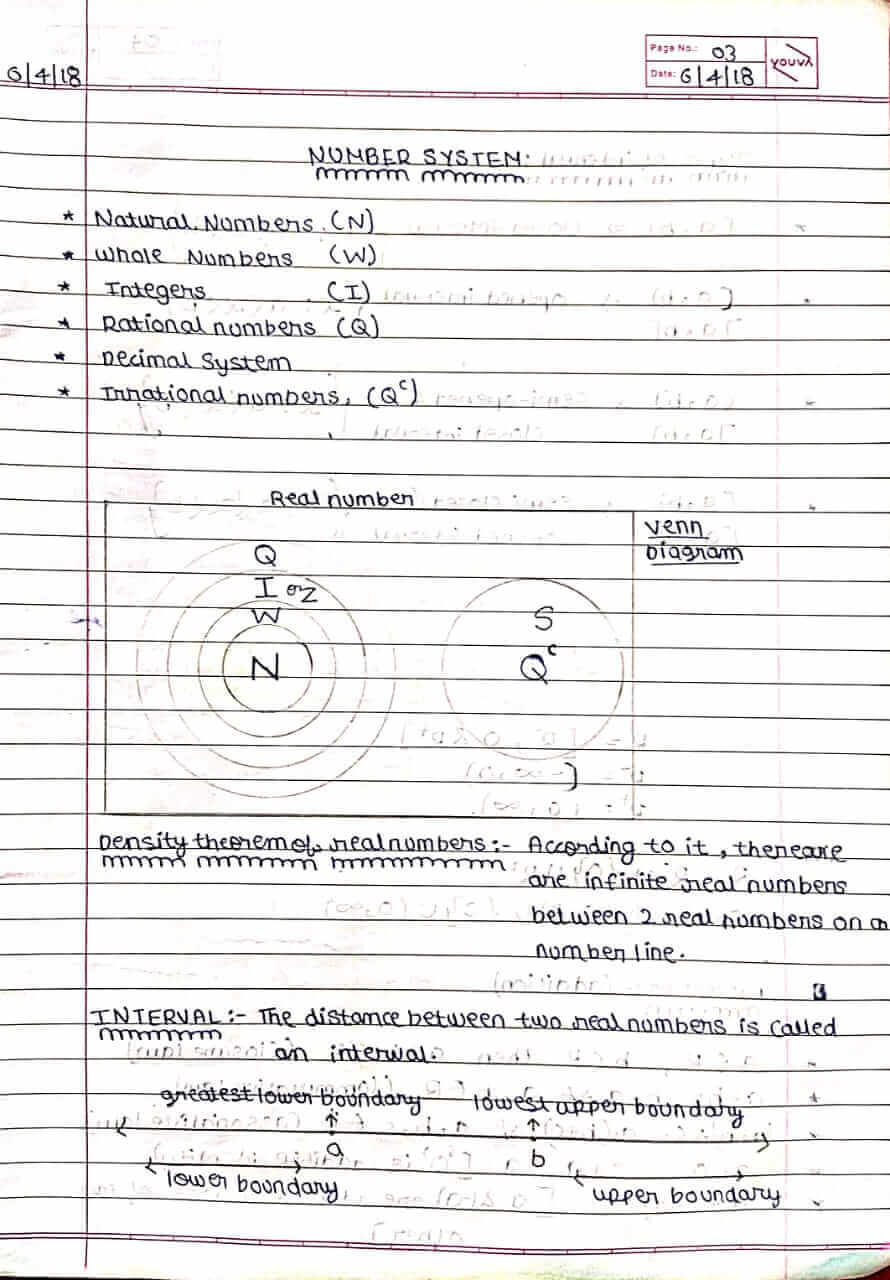 6/4/18
Page No.: 03
Date: 6/4/18
youva
NUMBER SYSTEM:
* Natural Numbers. (N)
* Whole Numbers (W)
* Integers (I)
* Rational numbers (Q)
* Decimal System
* Irrational numbers, (Qᶜ)
Real number
Venn
Diagram
Q
I or Z
W
N
S
Qᶜ
Density theorem of real numbers:- According to it, thereare
are infinite real numbers
between 2 real numbers on a
number line.
INTERVAL:- The distance between two real numbers is called
an interval.
greatest lower boundary lowest upper boundary
a b
lower boundary upper boundary